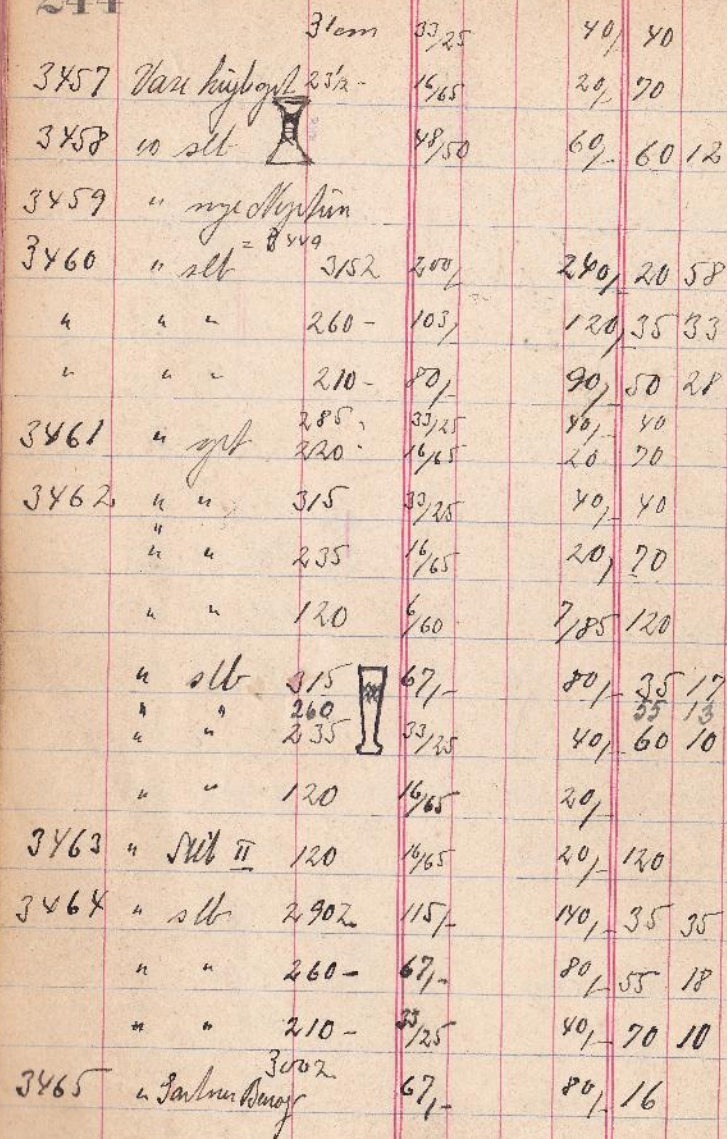 244
31cm 33/25 40/ 40
3457 Vase 23½ - 16/65 20/ 70
3458 10 slb 48/50 60/- 60 12
3459 " nye Neptun
= 3449
3460 " slb 3152 200/ 240/- 20 58
" " " 260 - 103/ 120/ 35 33
" " " 210 - 80/- 90/ 50 28
285 33/25 40/- 40
3461 " 220 16/65 20 70
3462 " " 315 33/25 40/- 40
"
" " 235 16/65 20/ 70
" " 120 6/60 7/85 120
" slb 315 67/- 80/- 35 17
" " 260 55 13
" " 235 33/25 40/ 60 10
" " 120 16/65 20/
3463 " II 120 16/65 20/- 120
3464 " slb 290 115/- 140/- 35 35
" " 260 - 67/- 80/- 55 18
" " 210 - 33/25 40/- 70 10
3465 " 67/- 80/ 16